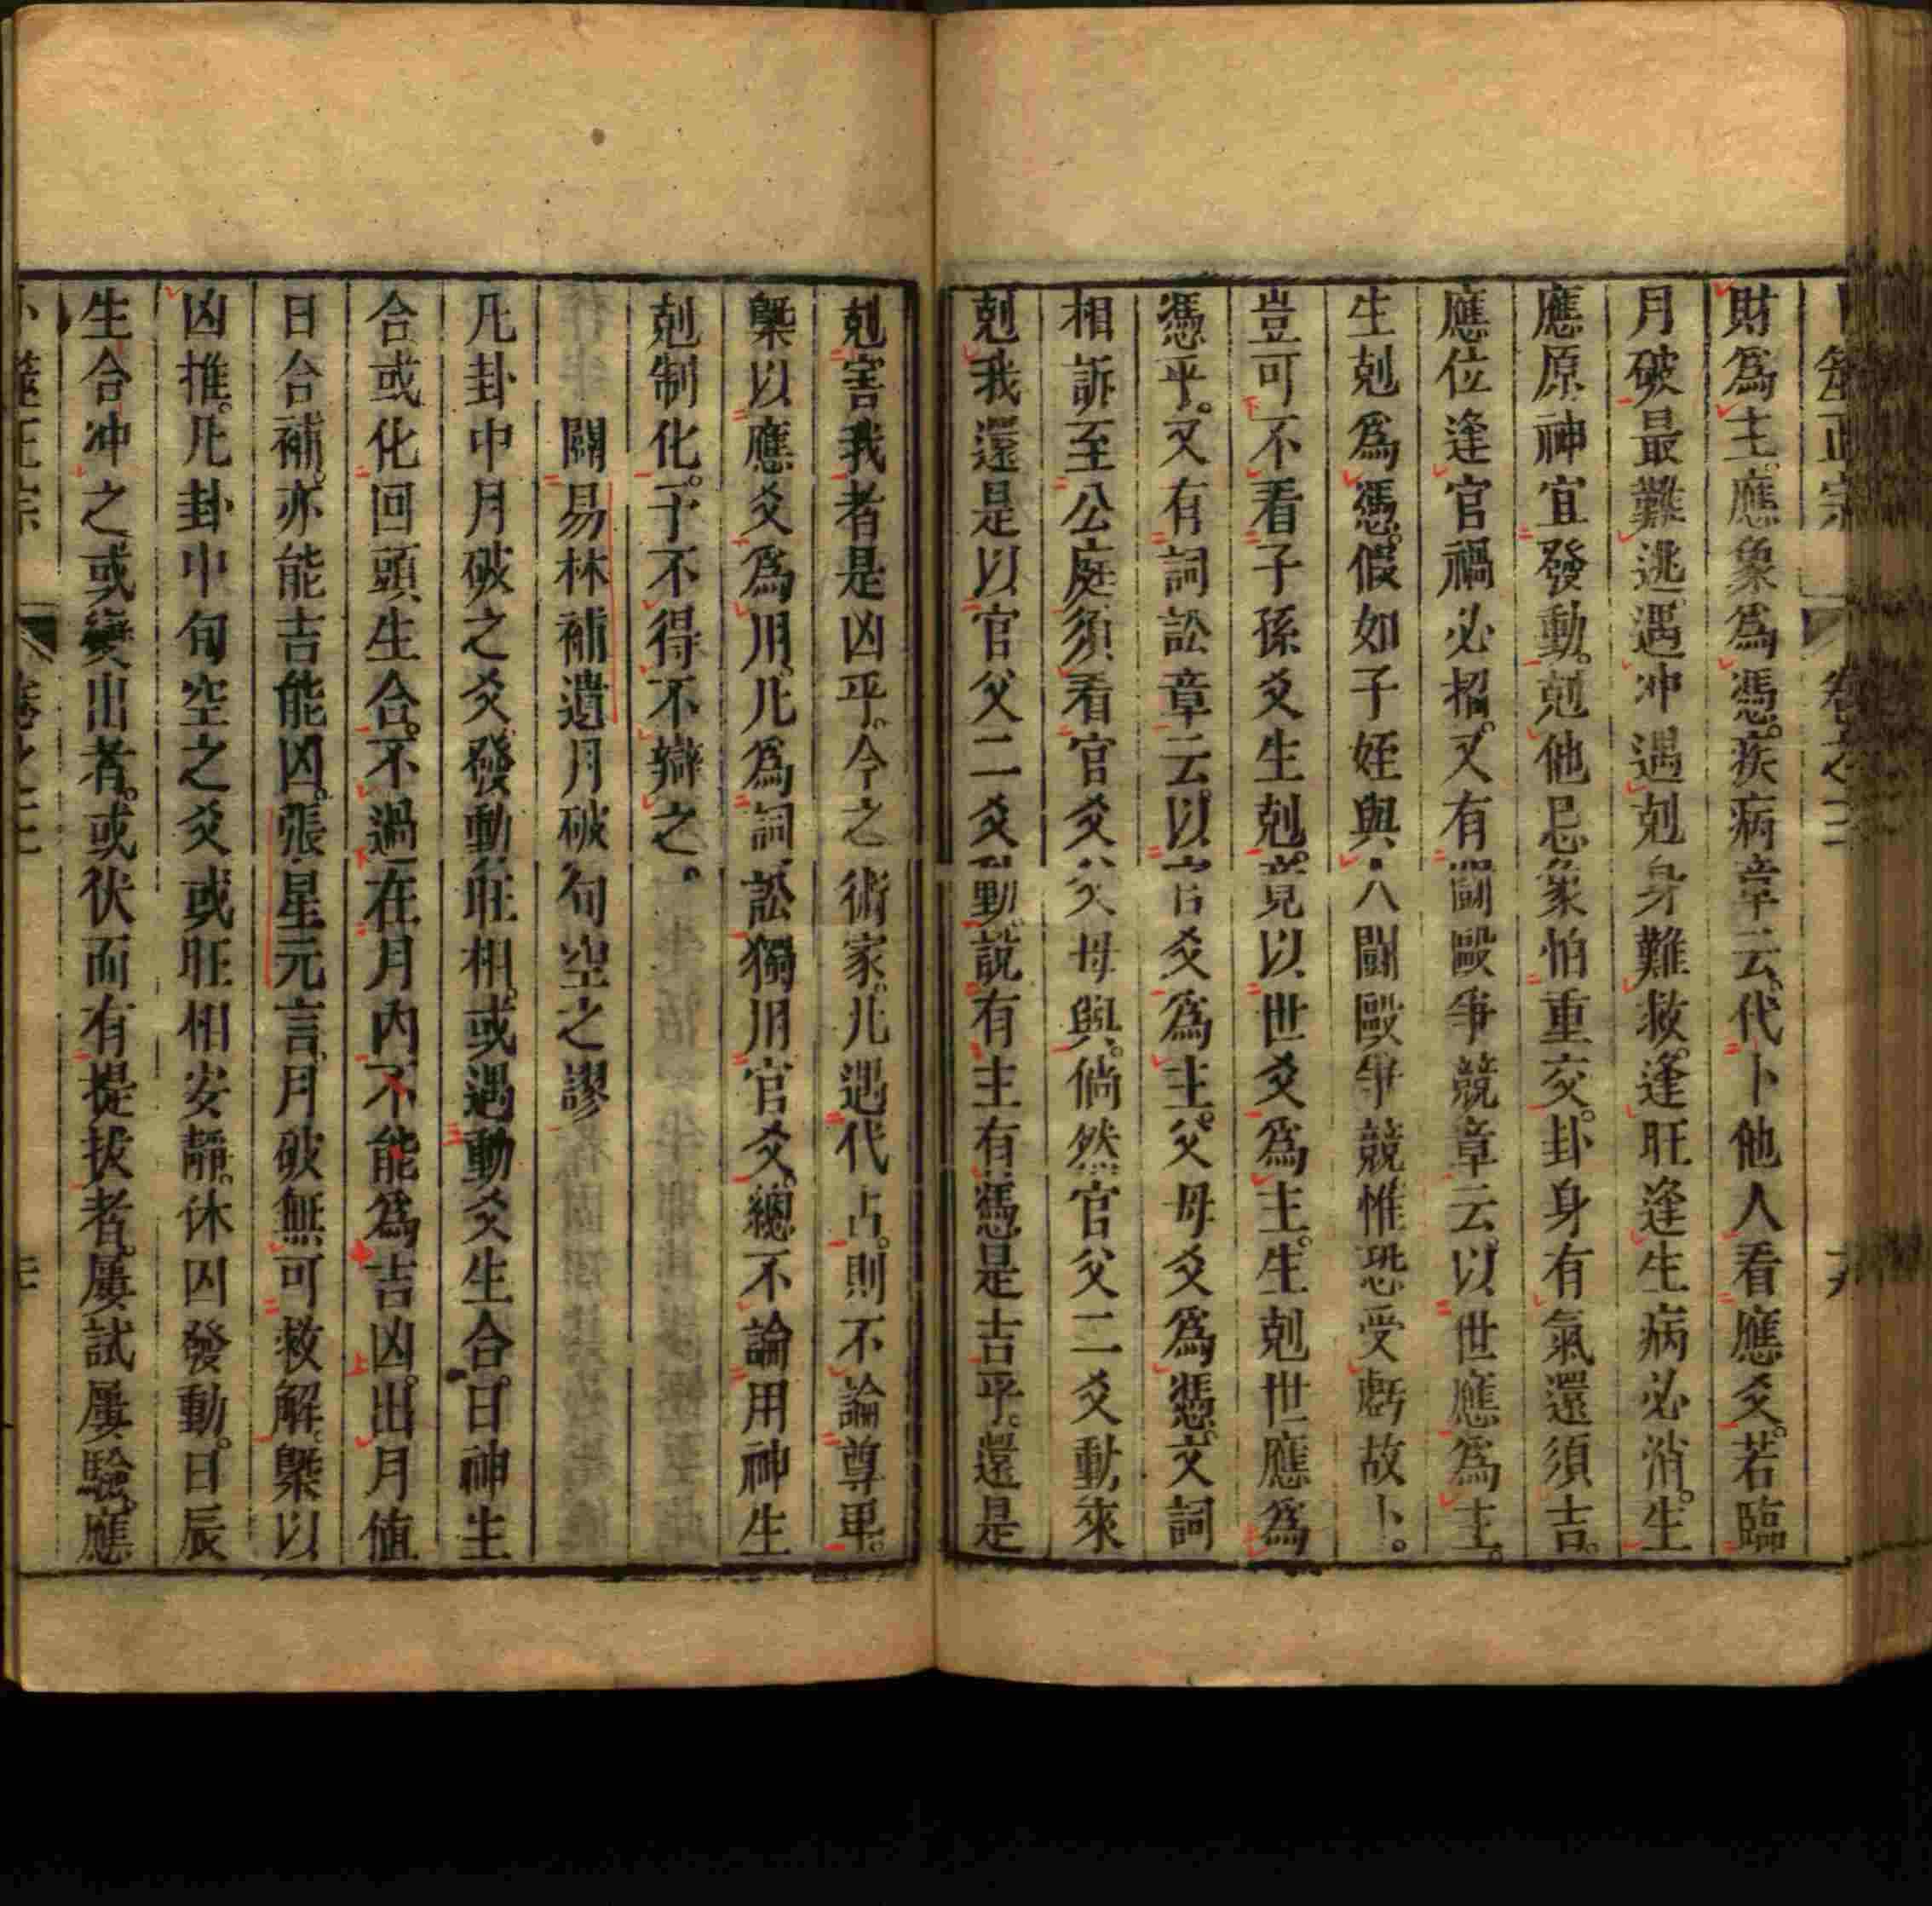 卜筮正宗 卷之二 六
財爲主應象爲憑疾病章云代卜他人看應爻若臨
月破最難逃遇冲遇剋身難救逢旺逢生病必消生
應原神宜發動剋他忌象怕重交卦身有氣還須吉
應位逢官禍必招又有鬪毆爭競章云以世應爲主
生剋爲憑假如子姪與人鬪毆爭競惟恐受虧故卜
豈可不看子孫爻生剋竟以世爻爲主生剋世應爲
憑乎又有詞訟章云以官爻爲主父母爻爲憑文詞
相訴至公庭須看官爻父母與倘然官父二爻動來
剋我還是以官父二爻動說有主有憑是吉乎還是
剋害我者是凶乎今之術家凡遇代占則不論尊卑
槩以應爻爲用凡爲詞訟獨用官爻總不論用神生
剋制化予不得不辯之
闢易林補遺月破旬空之謬
凡卦中月破之爻發動旺相或遇動爻生合日神生
合或化回頭生合不過在月內不能爲吉凶出月値
日合補亦能吉能凶張星元言月破無可救解槩以
凶推凡卦中旬空之爻或旺相安靜休囚發動日辰
生合冲之或變出者或伏而有提拔者屢試屢驗應
卜筮正宗 卷之二